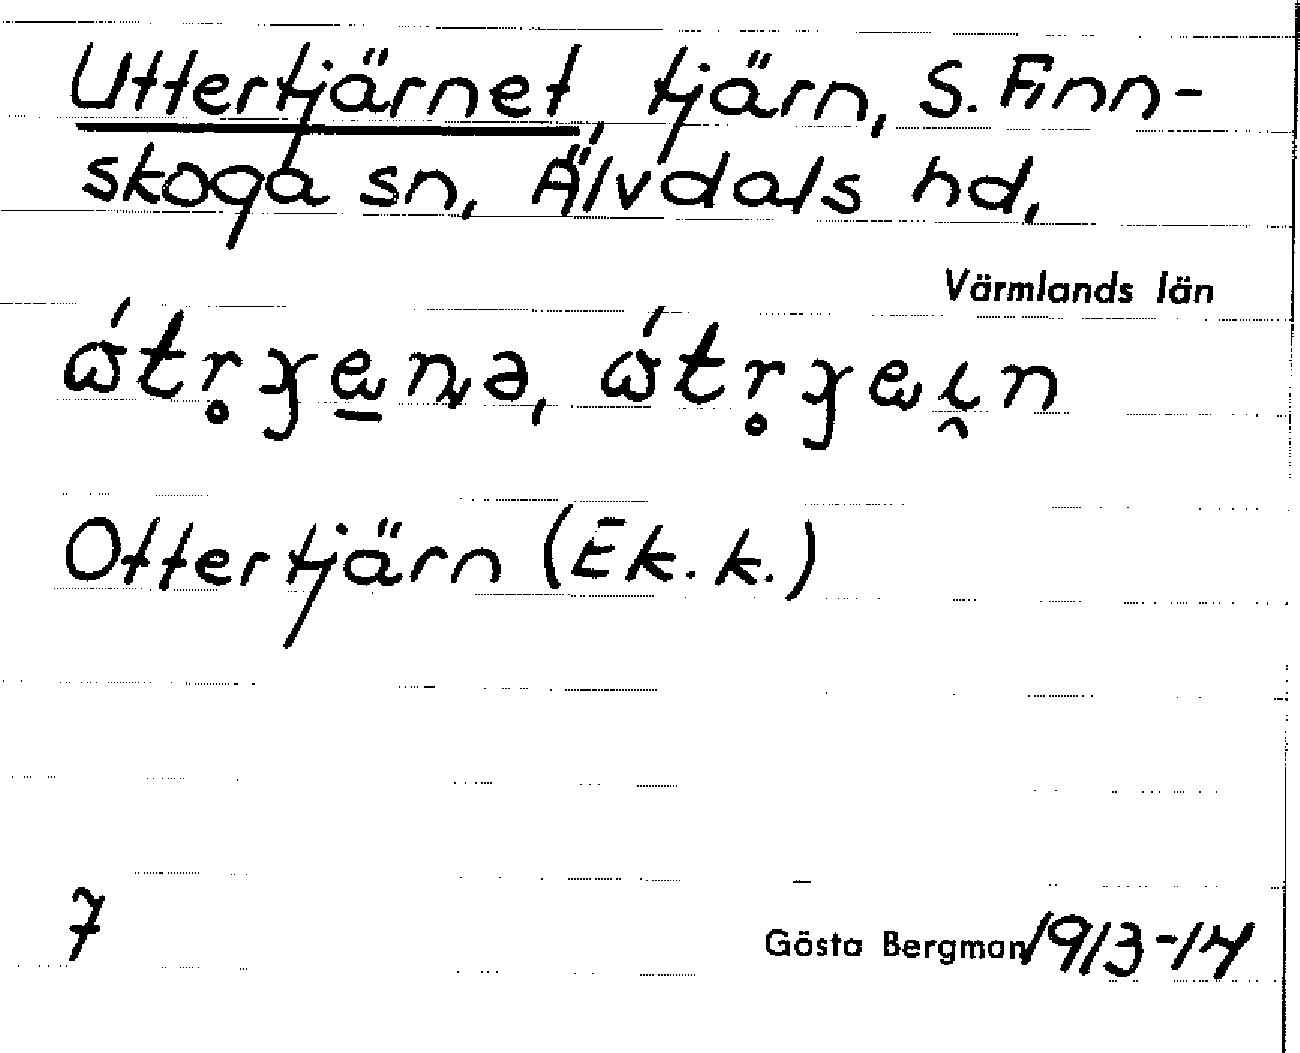 Uttertjärnet, tjärn, S. Finn-
skoga sn, Älvdals hd,
Värmlands län
Ottertjärn (Ek. k.)
7
Gösta Bergman 1913-14